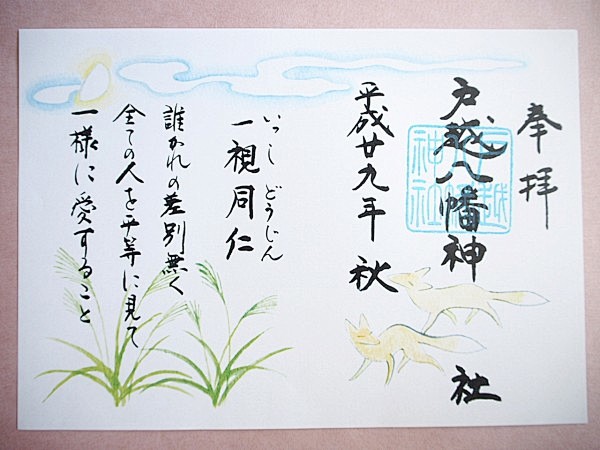 奉拝
戸越八幡神社
平成廿九年 秋
いっし どうじん
一視同仁
誰かれの差別無く
全ての人を平等に見て
一様に愛すること